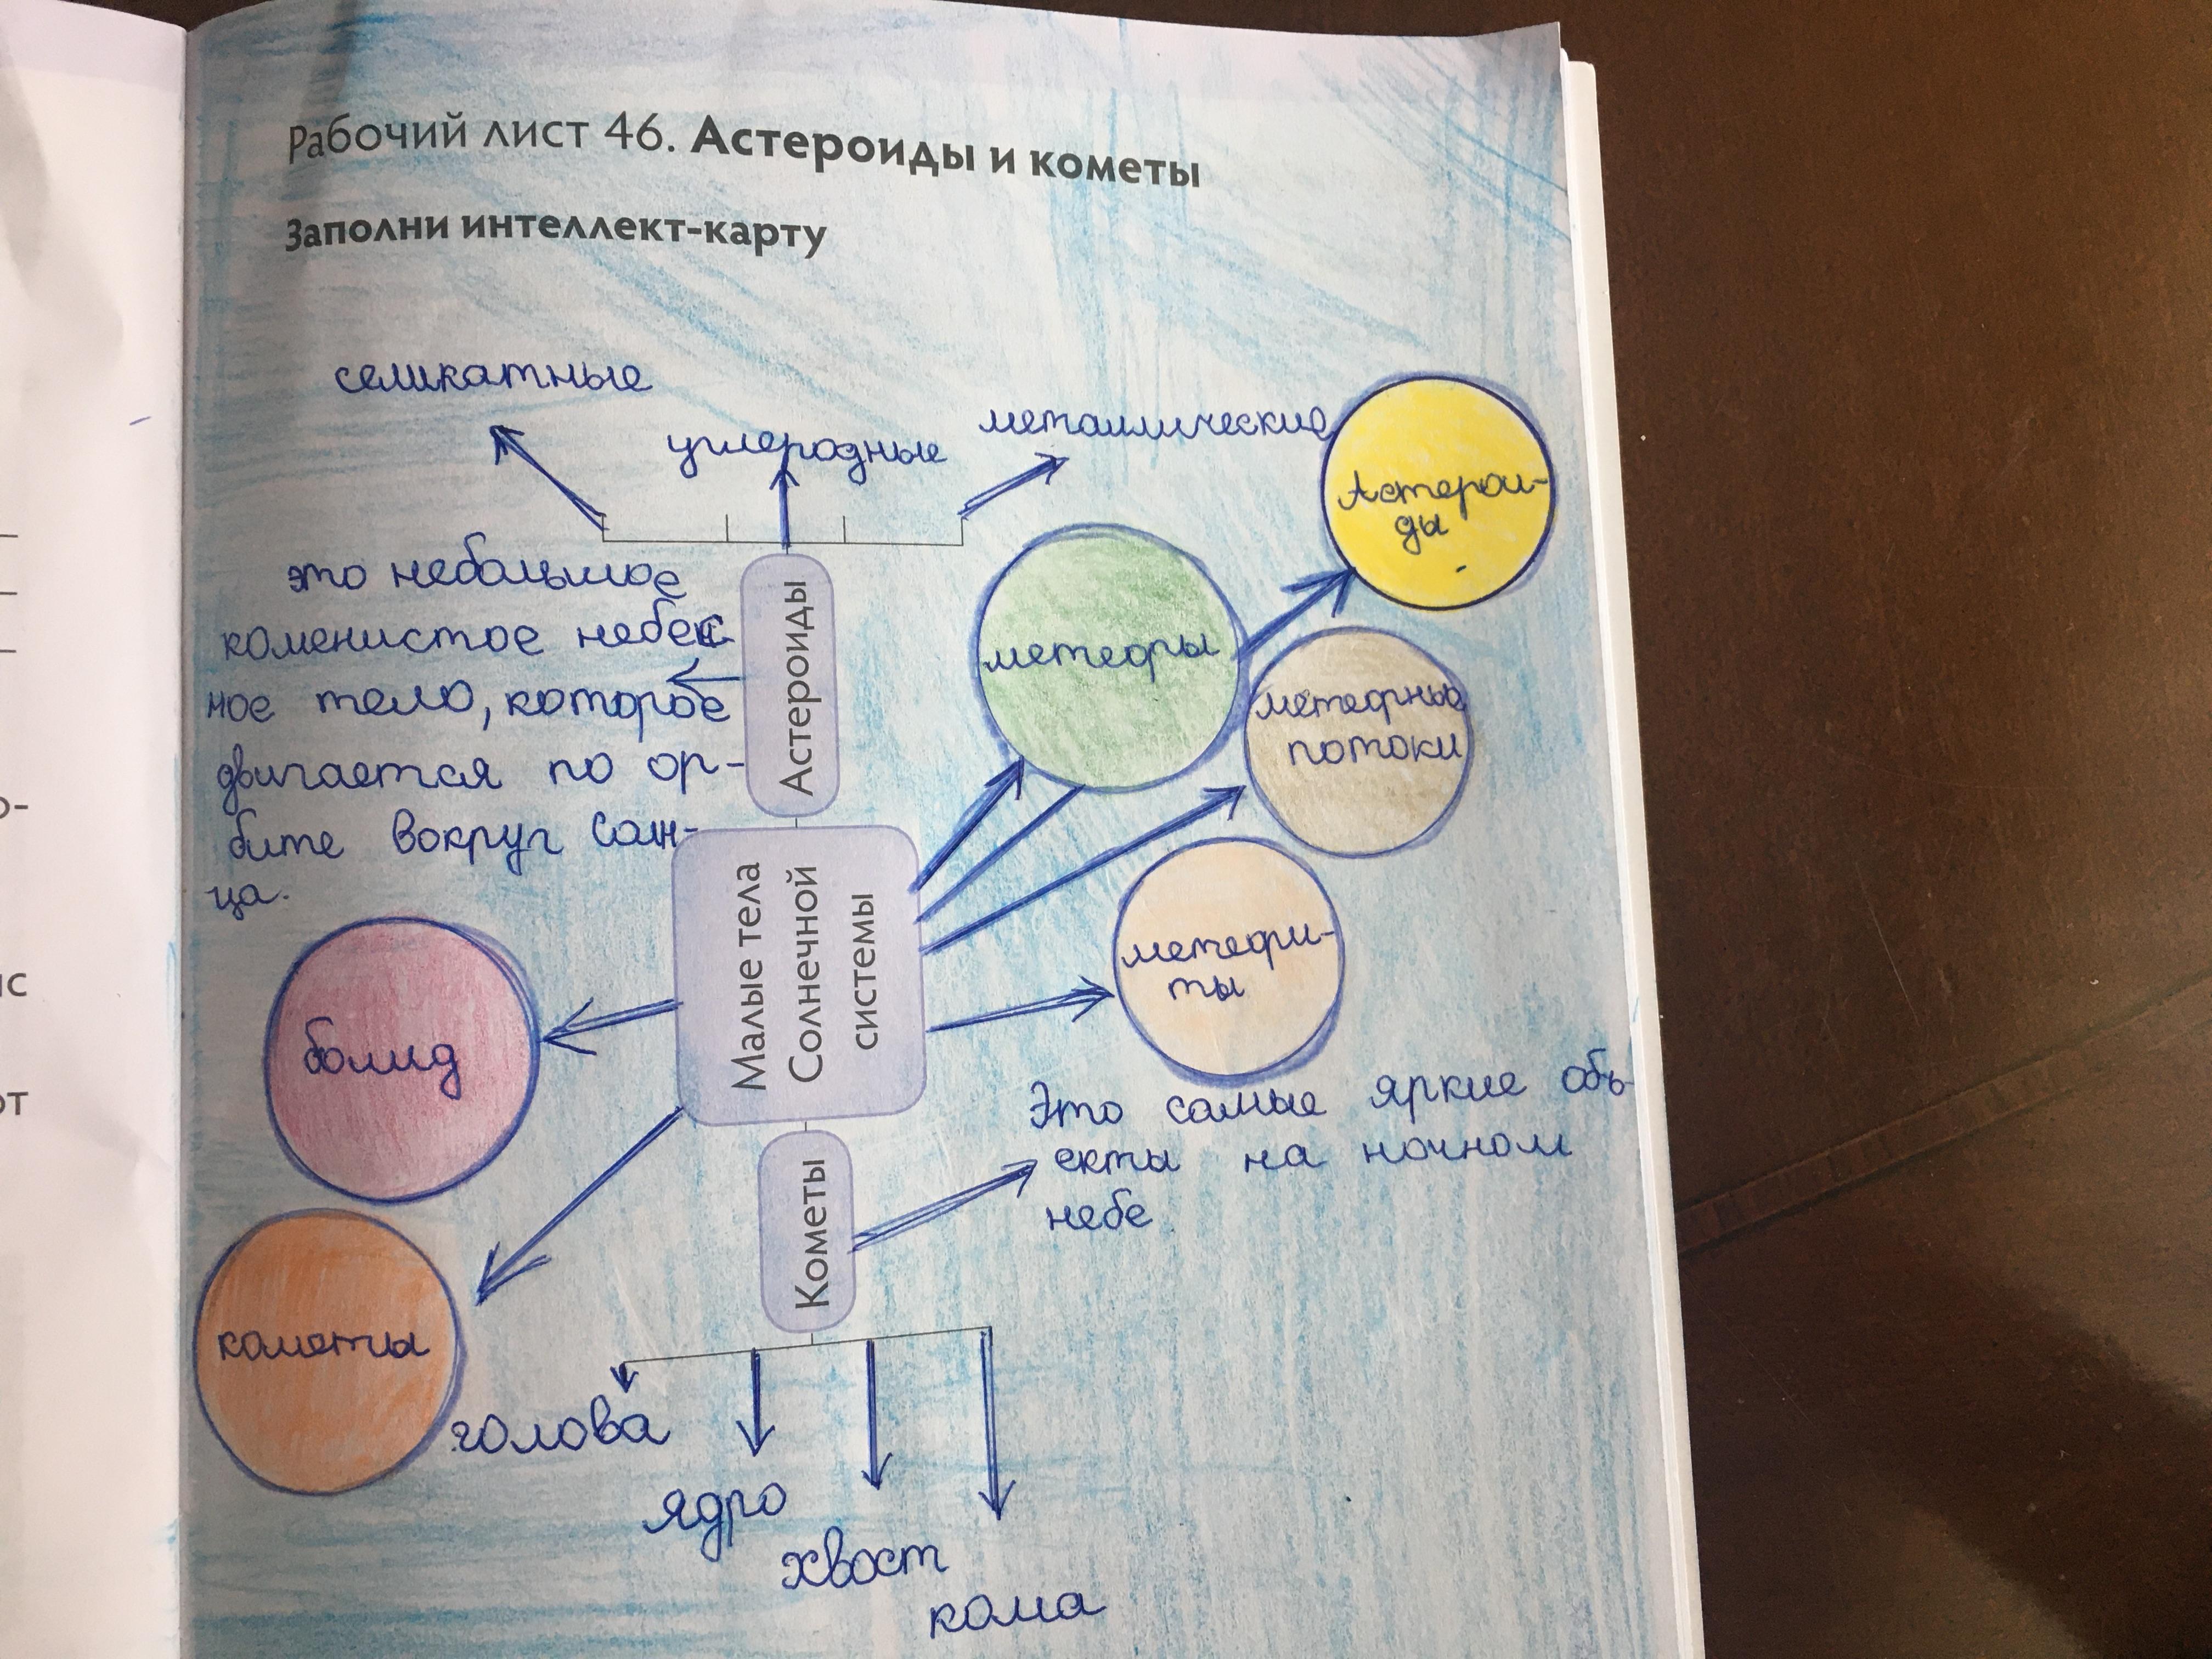 Рабочий лист 46. Астероиды и кометы
Заполни интеллект-карту
селикатные
углеродные
металлические
Астерои-
ды
это небольшое
коменистое небес
ное тело, которое
двигается по ор-
бите вокруг Солн-
ца.
Астероиды
метеоры
метеорные
потоки
метеори-
ты
Малые тела
Солнечной
системы
болид
кометы
Кометы
Это самые яркие объ-
екты на ночном
небе.
голова
ядро
хвост
кома
о-
ис
от